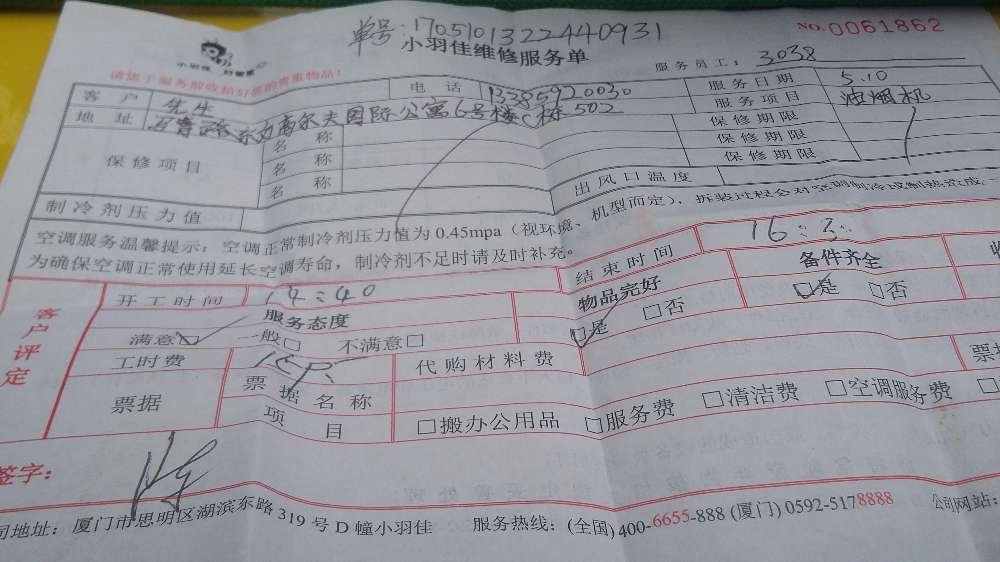 单号:1705101322440931
小羽佳维修服务单
NO.0061862
小羽佳
服务员工: 3038
请您于服务前收拾好您的贵重物品!
客 户 先生 电 话 13385920030 服务日期 5.10
地 址 高尔夫国际公寓6号楼C栋502 服务项目 油烟机
保修项目 名 称 保修期限
名 称 保修期限
名 称 保修期限
制冷剂压力值 出风口温度
空调服务温馨提示:空调正常制冷剂压力值为 0.45mpa(视环境、机型而定),拆装过程会对空调制冷或制热
为确保空调正常使用延长空调寿命,制冷剂不足时请及时补充。
客户评定
开工时间 14:40 结束时间 16:
服务态度 物品完好 备件齐全
满意☑ 一般□ 不满意□ ☑是 □否 ☑是 □否
工时费 代购材料费
票据 票据名称
项 目 □搬办公用品 □服务费 □清洁费 □空调服务费
签字:
司地址:厦门市思明区湖滨东路 319 号 D 幢小羽佳 服务热线:(全国)400-6655-888 (厦门) 0592-5178888 公司网站: